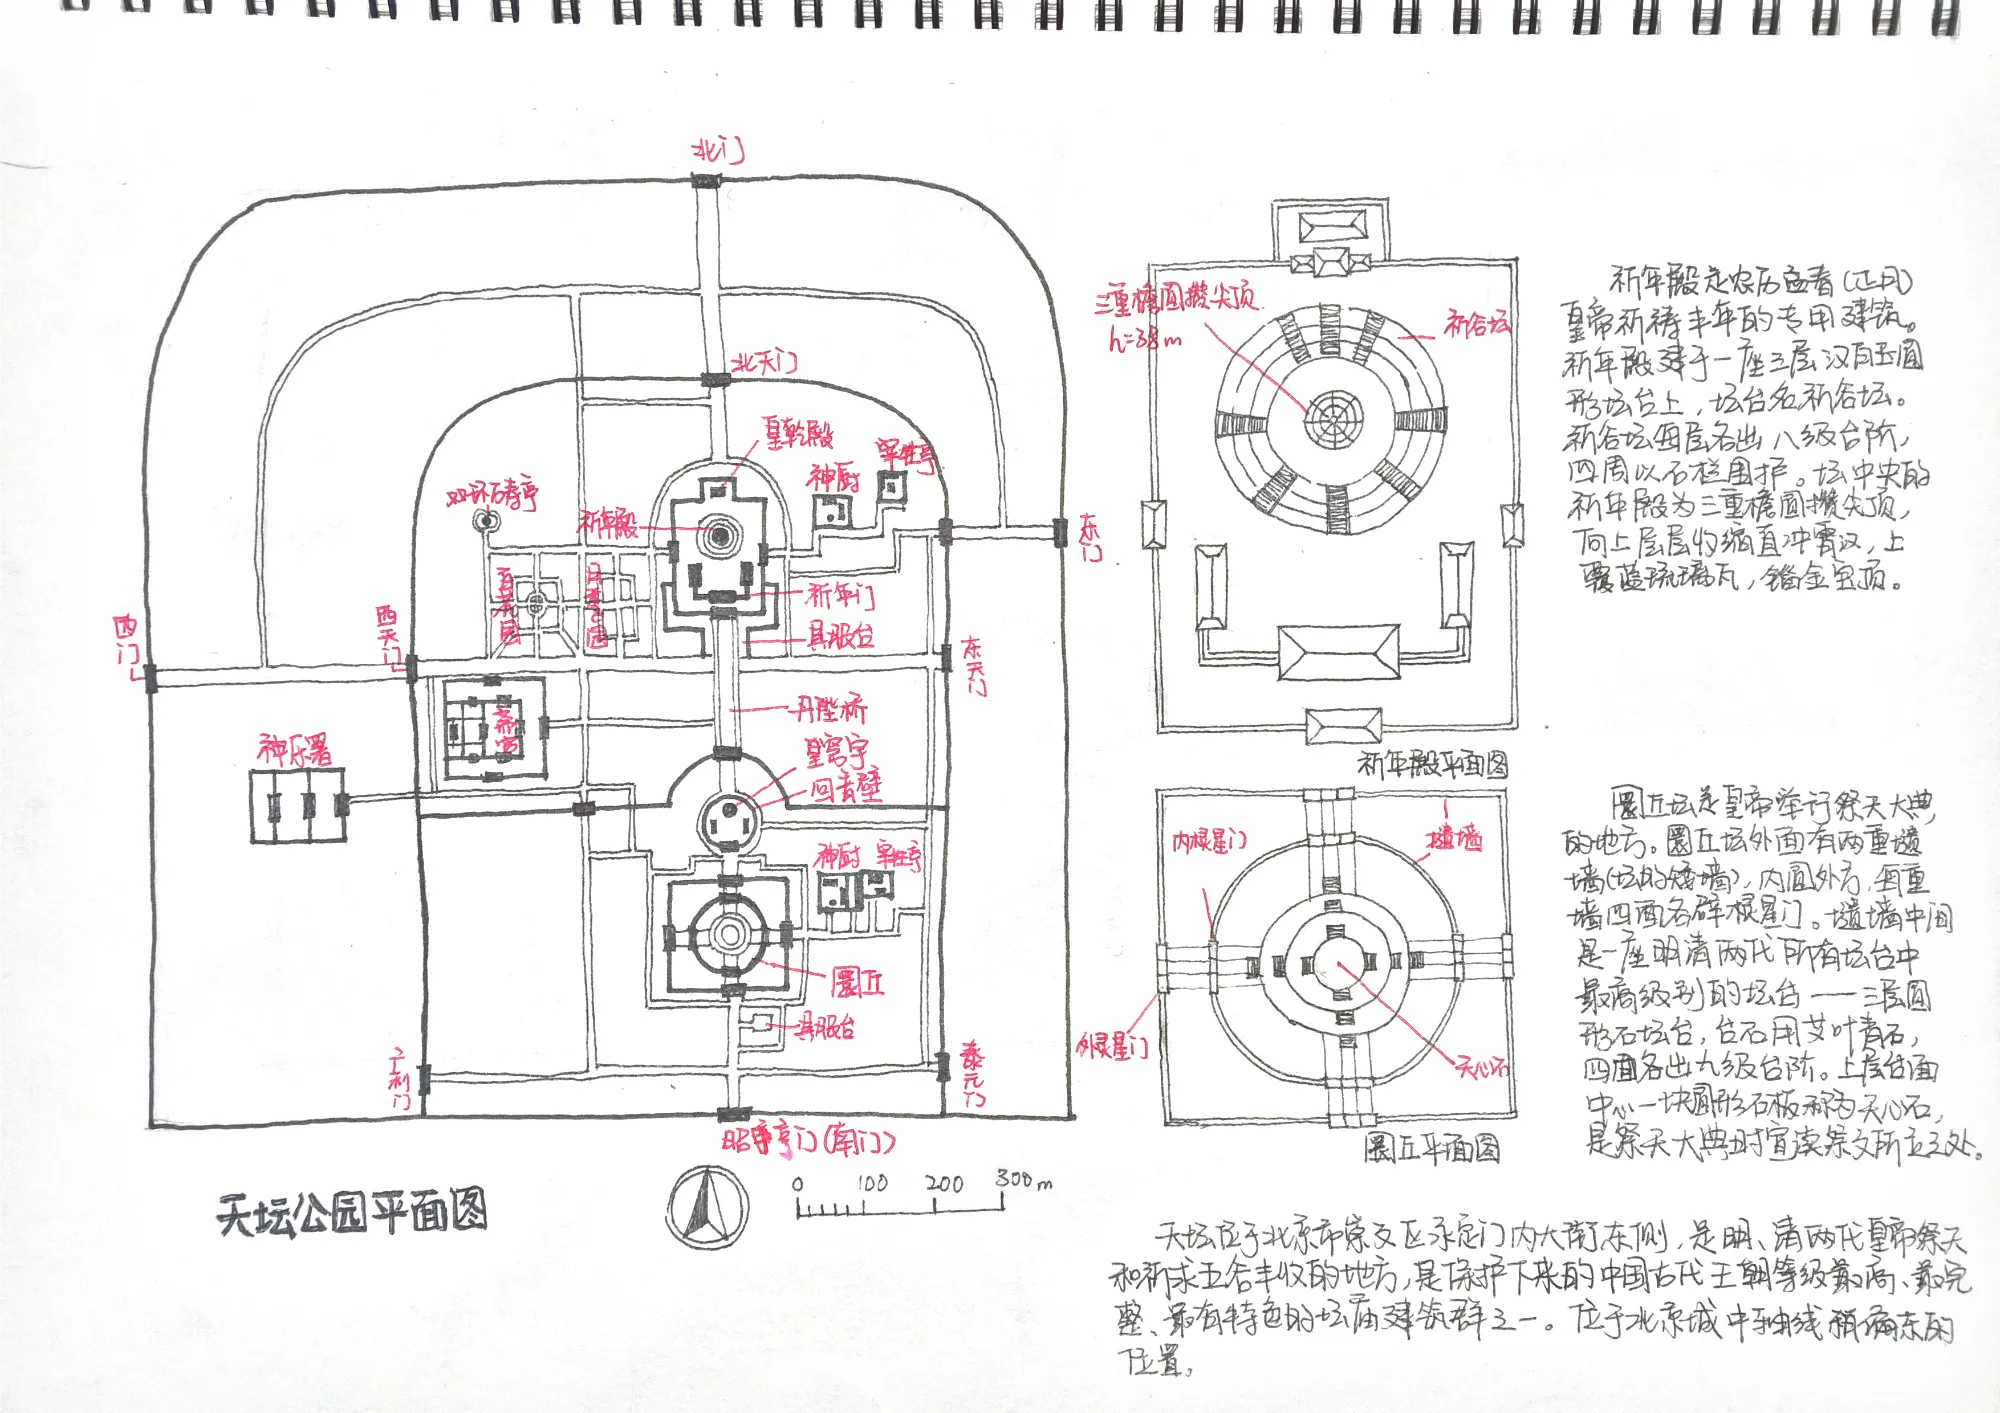 北门
北天门
皇乾殿
神厨
宰牲亭
双环万寿亭
祈年殿
东门
百花园
月季园
祈年门
具服台
西门
西天门
东天门
丹陛桥
斋宫
神乐署
皇穹宇
回音壁
神厨 宰牲亭
圜丘
具服台
广利门
泰元门
昭亨门(南门)
天坛公园平面图
0 100 200 300m
三重檐圆攒尖顶
h=38m
祈谷坛
祈年殿平面图
内棂星门
壝墙
外棂星门
天心石
圜丘平面图
祈年殿是农历孟春(正月)
皇帝祈祷丰年的专用建筑。
祈年殿建于一座三层汉白玉圆
形坛台上,坛台名祈谷坛。
祈谷坛每层各出八级台阶,
四周以石栏围护。坛中央的
祈年殿为三重檐圆攒尖顶,
向上层层收缩直冲霄汉,上
覆蓝琉璃瓦,鎏金宝顶。
圜丘坛是皇帝举行祭天大典
的地方。圜丘坛外面有两重壝
墙(坛的矮墙),内圆外方,每重
墙四面各辟棂星门。壝墙中间
是一座明清两代所有坛台中
最高级别的坛台——三层圆
形石坛台,台石用艾叶青石,
四面各出九级台阶。上层台面
中心一块圆形石板称为天心石,
是祭天大典时宣读祭文所立之处。
天坛位于北京市崇文区永定门内大街东侧,是明、清两代皇帝祭天
和祈求五谷丰收的地方,是保护下来的中国古代王朝等级最高、最完
整、最有特色的坛庙建筑群之一。位于北京城中轴线稍偏东的
位置。